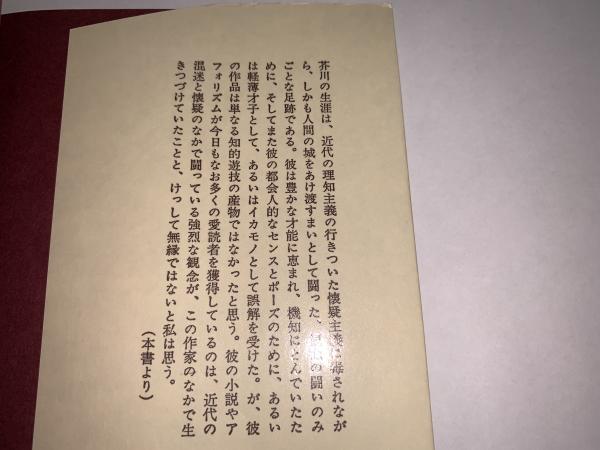 芥川の生涯は、近代の理知主義の行きついた懐疑主義に毒されなが
ら、しかも人間の城をあけ渡すまいとして闘った、の闘いのみ
ごとな足跡である。彼は豊かな才能に恵まれ、機知にとんでいたた
めに、そしてまた彼の都会人的なセンスとポーズのために、あるい
は軽薄才子として、あるいはイカモノとして誤解を受けた。が、彼
の作品は単なる知的遊技の産物ではなかったと思う。彼の小説やア
フォリズムが今日もなお多くの愛読者を獲得しているのは、近代の
混迷と懐疑のなかで闘っている強烈な観念が、この作家のなかで生
きつづけていたことと、けっして無縁ではないと私は思う。
（本書より）